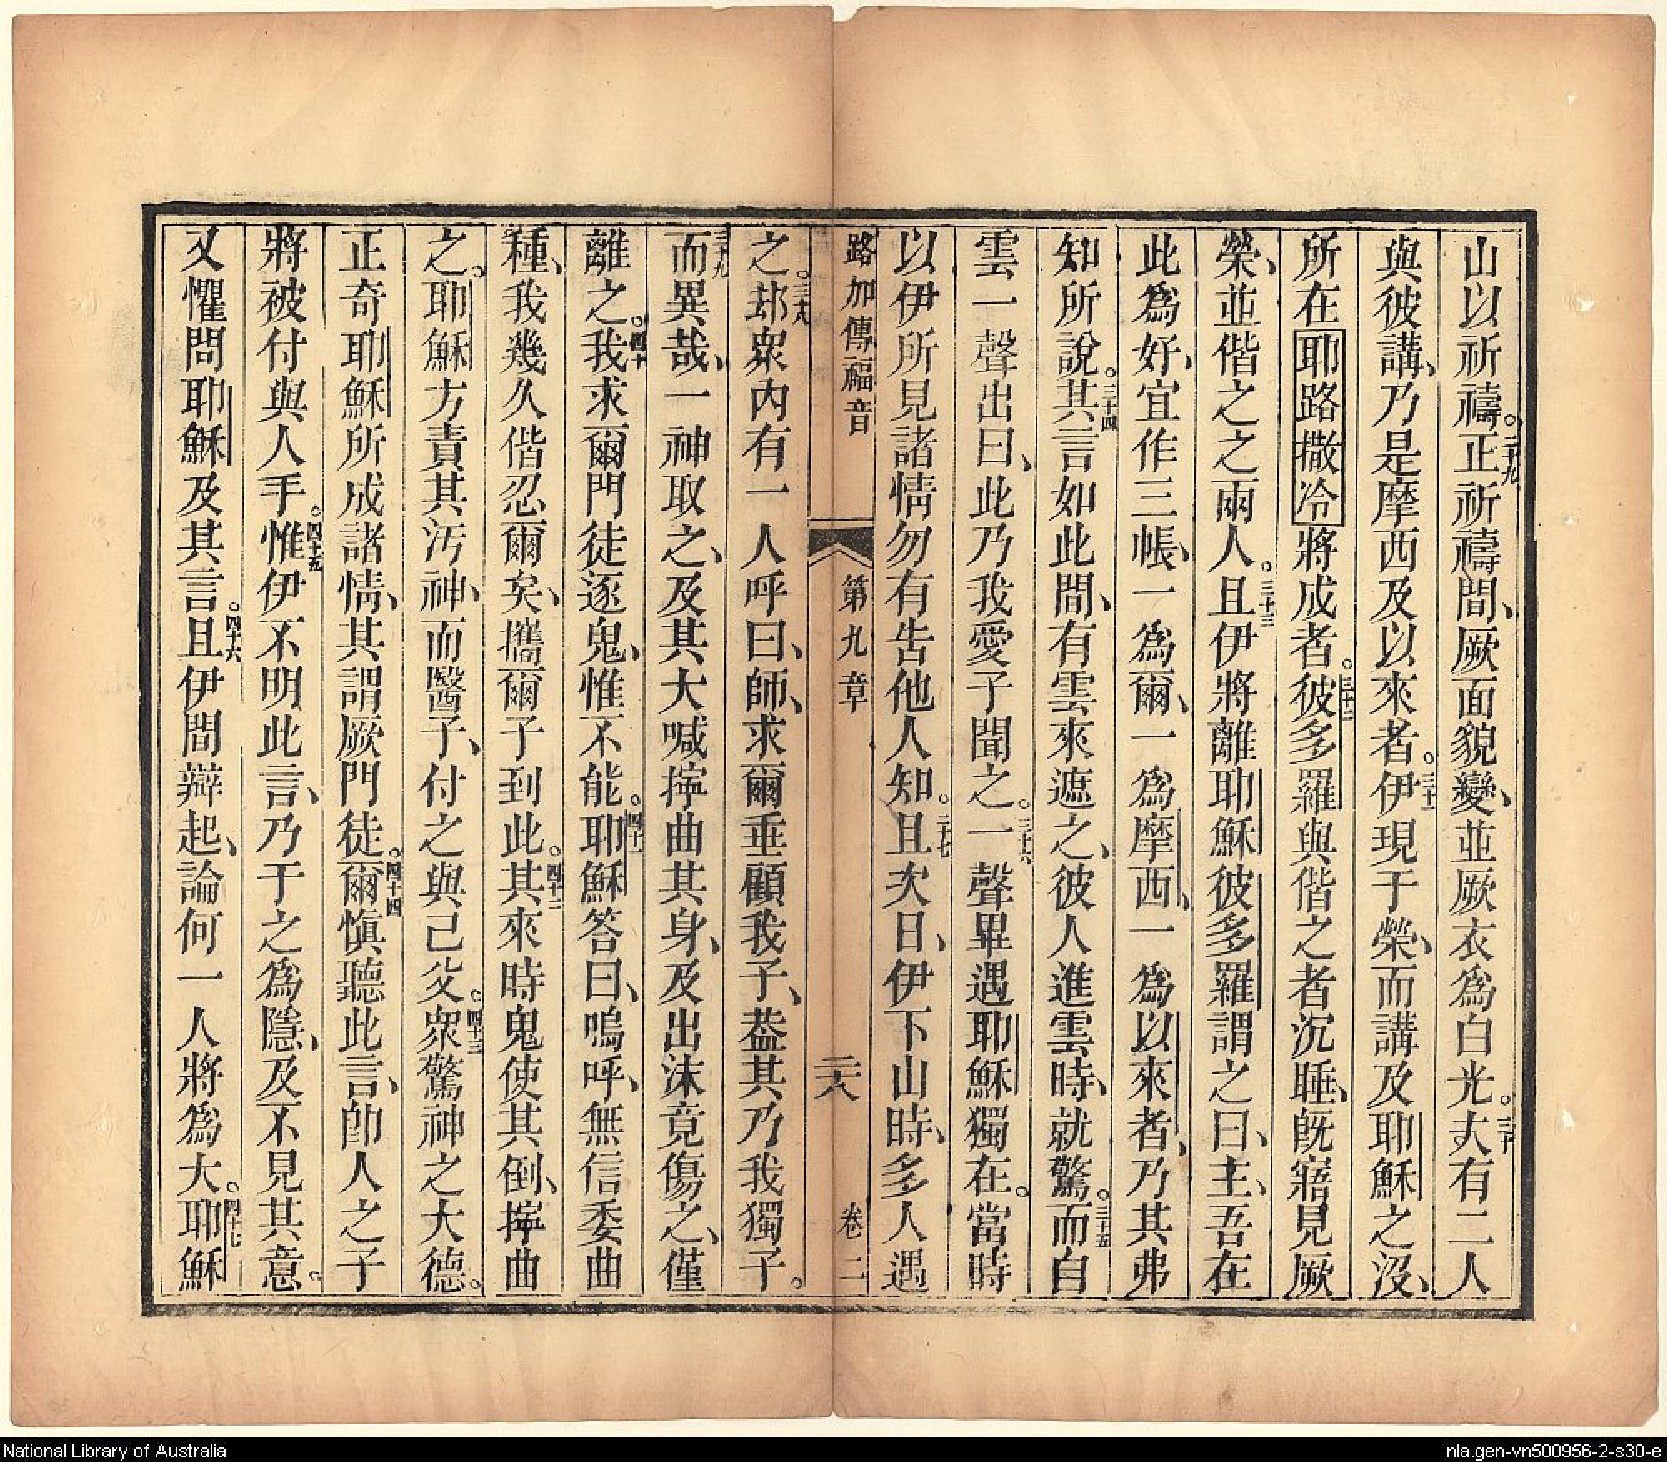 山以祈禱。二十九正祈禱間、厥面貌變、並厥衣為白光。三十夫有二人
與彼講、乃是摩西及以來者。三十一伊現于榮、而講及耶穌之沒、
所在耶路撒冷將成者。三十二彼多羅與偕之者沉睡、既寤見厥
榮、並偕之之兩人。三十三且伊將離耶穌彼多羅謂之曰、主、吾在
此為好、宜作三帳、一為爾、一為摩西、一為以來者、乃其弗
知所說。三十四其言如此間、有雲來遮之、彼人進雲時、就驚。三十五而自
雲一聲出曰、此乃我愛子聞之。三十六一聲畢遇耶穌獨在。當時
以伊所見諸情勿有告他人知。三十七且次日、伊下山時、多人遇
路加傳福音 第九章 二十八 卷二
之。三十八却眾內有一人呼曰、師、求爾垂顧我子、蓋其乃我獨子。
三十九而異哉、一神取之、及其大喊擰曲其身、及出沫竟傷之、僅
離之。四十我求爾門徒逐鬼、惟不能。四十一耶穌答曰、嗚呼、無信委曲
種、我幾久偕忍爾矣、攜爾子到此。四十二其來時鬼使其倒、擰曲
之。耶穌方責其汚神、而醫子、付之與己父。四十三眾驚神之大德。
正奇耶穌所成諸情、其謂厥門徒。四十四爾慎聽此言、即人之子
將被付與人手。四十五惟伊不明此言、乃于之為隱、及不見其意。
又懼問耶穌及其言。四十六且伊間辯起、論何一人將為大。四十七耶穌
National Library of Australia
nla.gen-vn500956-2-s30-e